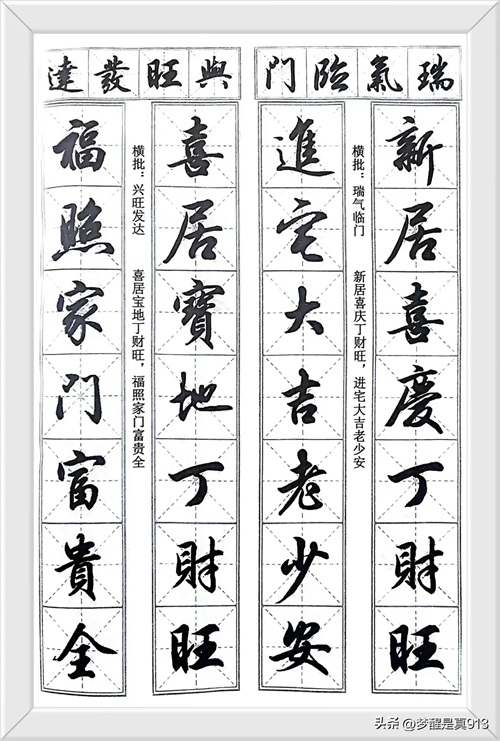 瑞氣臨門
新居喜慶丁財旺
横批：瑞气临门
新居喜庆丁财旺，进宅大吉老少安
進宅大吉老少安
興旺發達
喜居寶地丁財旺
横批：兴旺发达
喜居宝地丁财旺，福照家门富贵全
福照家門富貴全
头条 @梦醒是真913